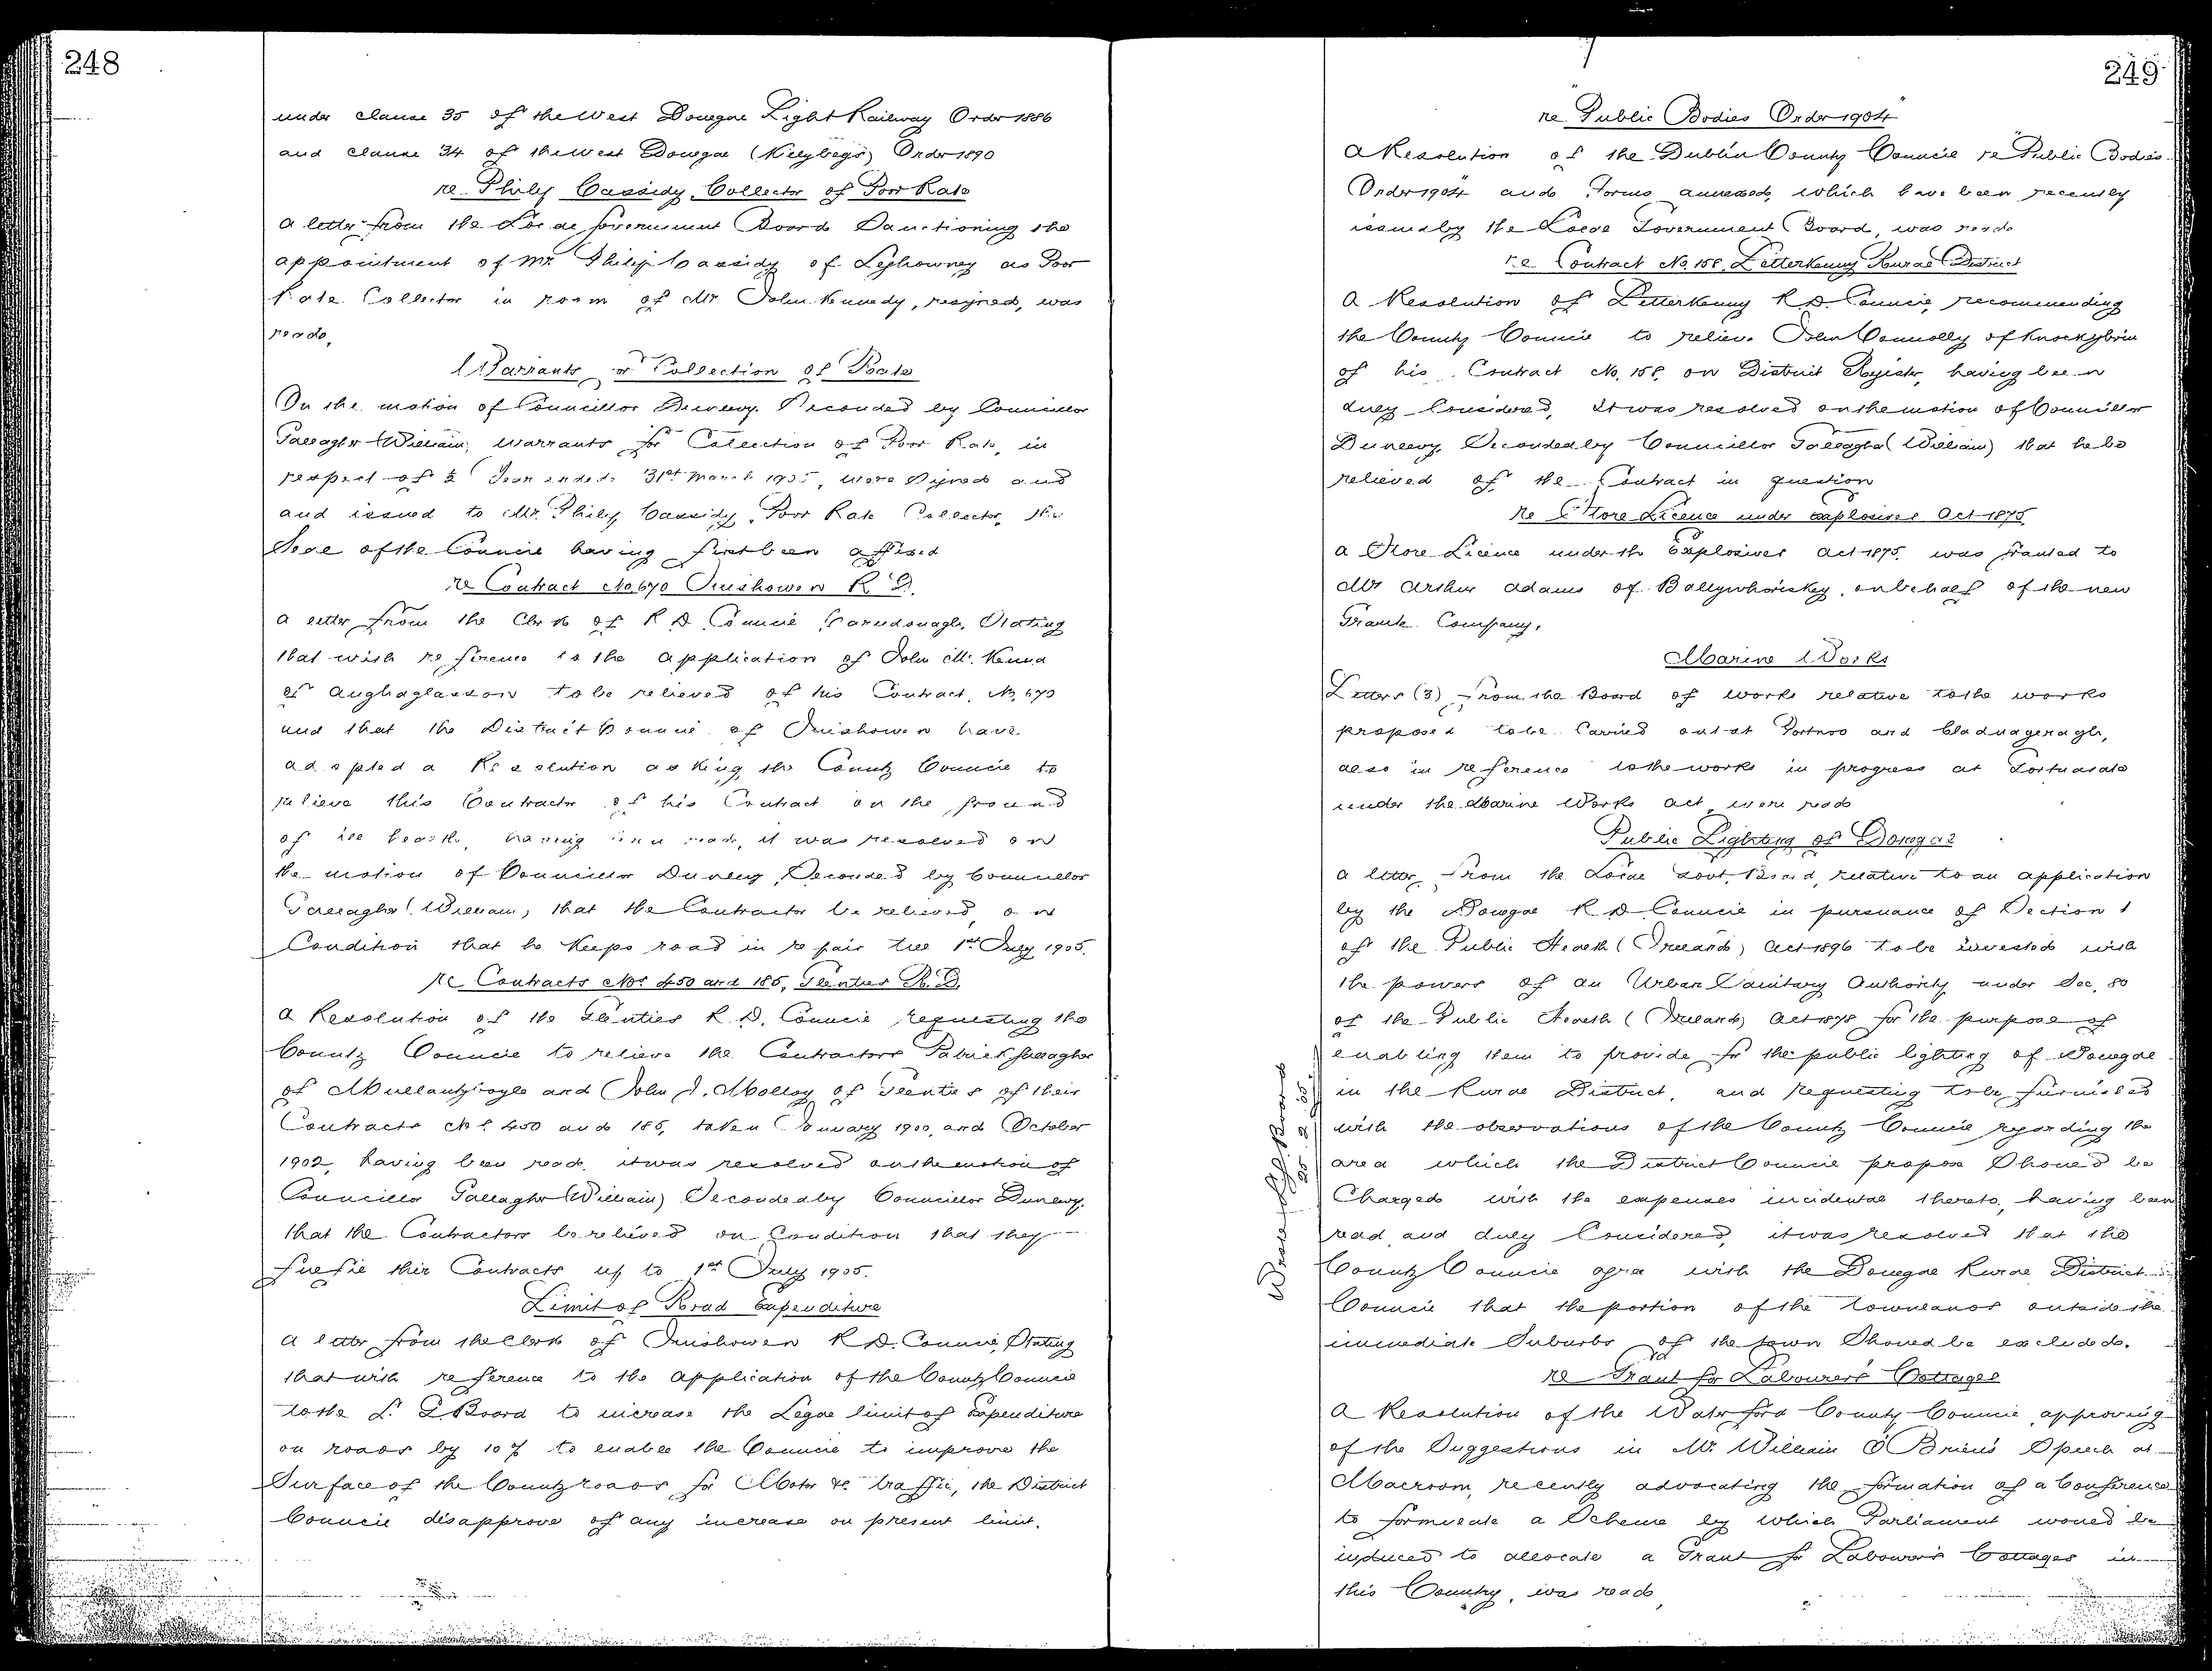 248
under clause 35 of the West Donegal Light Railway Order 1886
and clause 34 of the West Donegal (Killybegs) Order 1890
re Philip Cassidy, Collector of Poor Rate
A letter from the Local Government Board Sanctioning the
appointment of Mr. Philip Cassidy of Leghowney as Poor
Rate Collector in room of Mr John Kennedy, resigned, was
read.
Warrants for Collection of Rate
On the motion of Councillor Dunlevy. Seconded by Councillor
Gallagher (William) Warrants for Collection of Poor Rate, in
respect of ½ Year ended 31st March 1905, were Signed and
and issued to Mr. Philip Cassidy, Poor Rate Collector, the
Seal of the Council having first been affixed
re Contract No. 670 Inishowen R.D.
A letter from the Clerk of R D Council, Carndonagh, Stating
that with reference to the application of John Mc. Kenna
of Aughaglasson to be relieved of his Contract, No. 670
and that the District Council of Inishowen have
adopted a Resolution asking the County Council to
relieve this Contractor of his Contract on the ground
of ill health, having been read, it was resolved on
the motion of Councillor Dunlevy, Seconded by Councillor
Gallagher (William) that the Contractor be relieved on
Condition that he keeps road in repair till 1st July 1905.
re Contracts Nos 450 and 185, Glenties R.D.
A Resolution of the Glenties R.D. Council requesting the
County Council to relieve the Contractors Patrick Gallagher
of Mullantyboyle and John J. Molloy of Glenties of their
Contracts Nos 450 and 185, taken January 1900, and October
1902, having been read, it was resolved on the motion of
Councillor Gallagher (William) Seconded by Councillor Dunlevy.
that the Contractors be relieved on Condition that they
fulfil their Contracts up to 1st July 1905.
Limit of Road Expenditure
A letter from the Clerk of Inishowen R.D. Council, Stating
that with reference to the application of the County Council
to the L. G Board to increase the Legal limit of Expenditure
on roads by 10% to enable the Council to improve the
Surface of the County roads for Motor &c traffic, the District
Council disapprove of any increase on present limit.
249
re "Public Bodies Order 1904"
A Resolution of the Dublin County Council re Public Bodies
Order 1904 and Forms annexed, which have been recently
issued by the Local Government Board, was read
re Contract No. 158, Letterkenny Rural District
A Resolution of Letterkenny R.D. Council, recommending
the County Council to relieve John Connolly of Knockybrin
of his Contract No. 158, on District Register, having been
duly Considered, it was resolved on the motion of Councillor
Dunlevy, Seconded by Councillor Gallagher (William) that he be
relieved of the Contract in question
re Store Licence under Explosives Act 1875
A Store Licence under the Explosives Act 1875, was granted to
Mr Arthur Adams of Ballywhoriskey, on behalf of the new
Granite Company.
Marine Works
Letters (3) from the Board of Works relative to the works
proposed to be Carried out at Portnoo and Cladnageragh,
also in reference to the works in progress at Portnasate
under the Marine Works Act were read
Public Lighting of Donegal
A letter from the Local Govt. Board, relative to an application
by the Donegal R D Council in pursuance of Section 1
of the Public Health (Ireland) Act 1896 to be invested with
the powers of an Urban Sanitary Authority under Sec. 80
of the Public Health (Ireland) Act 1878 for the purpose of
enabling them to provide for the public lighting of Donegal
in the Rural District, and requesting to be furnished
with the observations of the County Council regarding the
area which the District Council propose Should be
Charged with the expenses incidental thereto, having been
read, and duly Considered, it was resolved that the
County Council agree with the Donegal Rural District
Council that the portion of the townlands outside the
immediate Suburbs of the town Should be excluded.
re Grant for Labourers' Cottages
A Resolution of the Waterford County Council approving
of the Suggestions in Mr. William O'Brien's Speech at
Macroom, recently advocating the formation of a Conference
to formulate a Scheme by which Parliament would be
induced to allocate a Grant for Labourers Cottages in
this Country, was read